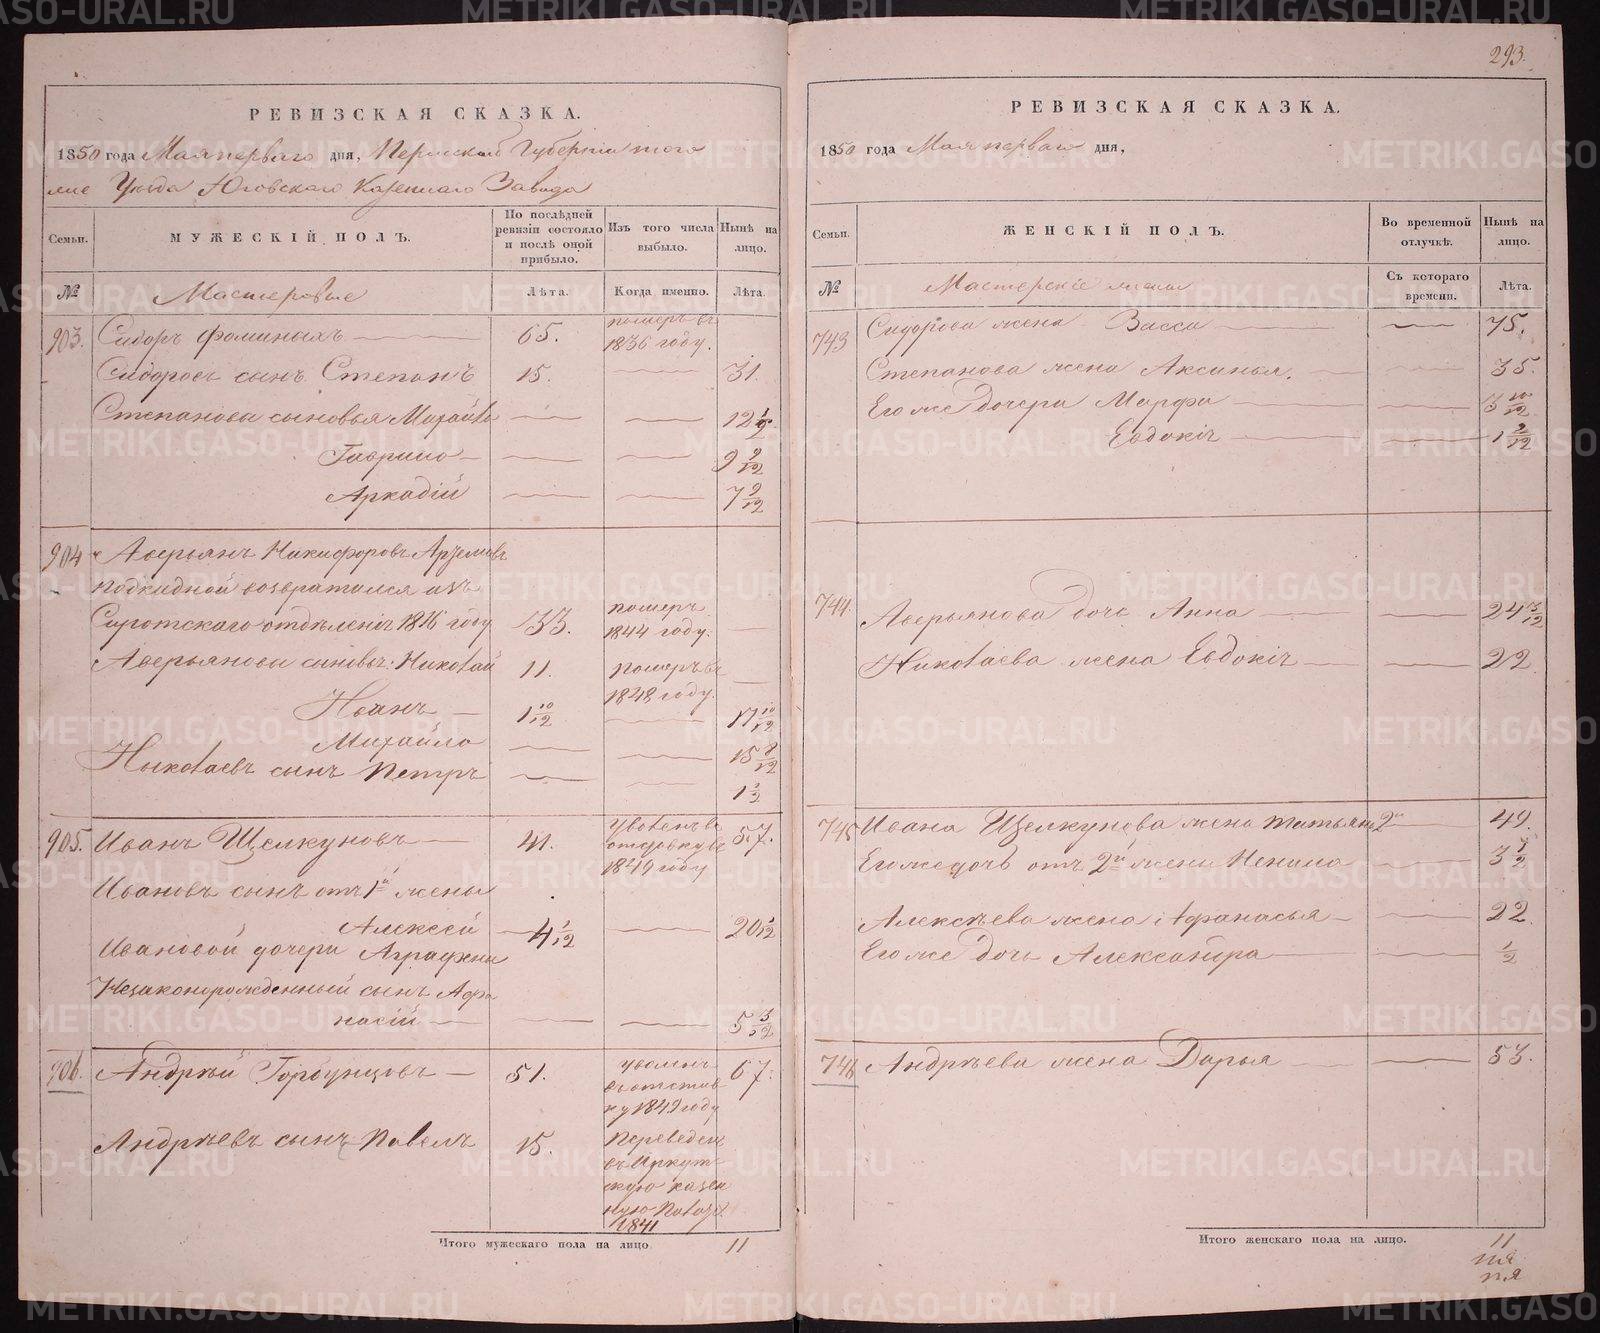 293.
РЕВИЗСКАЯ СКАЗКА.
1850 года Мая первого дня, Пермской Губернии того
же Уезда Юговскаго Казеннаго Завода
Семьи.
МУЖЕСКІЙ ПОЛЪ.
По послѣдней ревизіи состояло и послѣ оной прибыло.
Изъ того числа выбыло.
Нынѣ на лицо.
№
Мастеровые
Лѣта.
Когда именно.
Лѣта.
903. Сидоръ Фоминыхъ 65. померъ въ 1836 году.
Сидоровъ сынъ Степанъ 15. 31.
Степановы сыновья Михайло 12 1/2
Гаврило 9 9/12
Аркадій 7 9/12
904 Аверьянъ Никифоровъ
подкидной возвратился изъ
Сиротскаго отдѣленія 1816 году 33. померъ 1844 году.
Аверьяновы сыновья: Николай 11. померъ въ 1848 году.
Иванъ 1 10/12 17 10/12
Михайло 15
Николаевъ сынъ Петръ 1 1/2
905. Иванъ Щелкуновъ 41. уволенъ въ отставку въ 1849 году 57.
Ивановъ сынъ отъ 1й жены
Алексей 4 1/12 20 1/12
Ивановой дочери Аграфены
Незаконорожденный сынъ Афа
насій 5 3/12
906. Андрѣй Горбунцовъ 51. уволенъ въ отставку 1849 году 67.
Андрѣевъ сынъ Павелъ 15. Переведенъ въ Иркутскую казенную 1841
Итого мужескаго пола на лицо 11
РЕВИЗСКАЯ СКАЗКА.
1850 года Мая первого дня,
Семьи.
ЖЕНСКІЙ ПОЛЪ.
Во временной отлучкѣ.
Нынѣ на лицо.
№
Мастерскіе жены
Съ котораго времени.
Лѣта.
743 Сидорова жена Васса 75.
Степанова жена Аксинья. 35.
Его же дочери Марфа 3 10/12
Евдокія 1 2/12
744. Аверьянова дочь Анна 24 3/12
Николаева жена Евдокія 22
745 Ивана Щелкунова жена Татьяна 2я 49.
Его же дочь отъ 2й жены Ненила 3 1/2
Алексѣева жена Афанасья 22
Его же дочь Александра 1/2
746 Андрѣева жена Дарья 53.
Итого женскаго пола на лицо. 11
METRIKI.GASO-URAL.RU